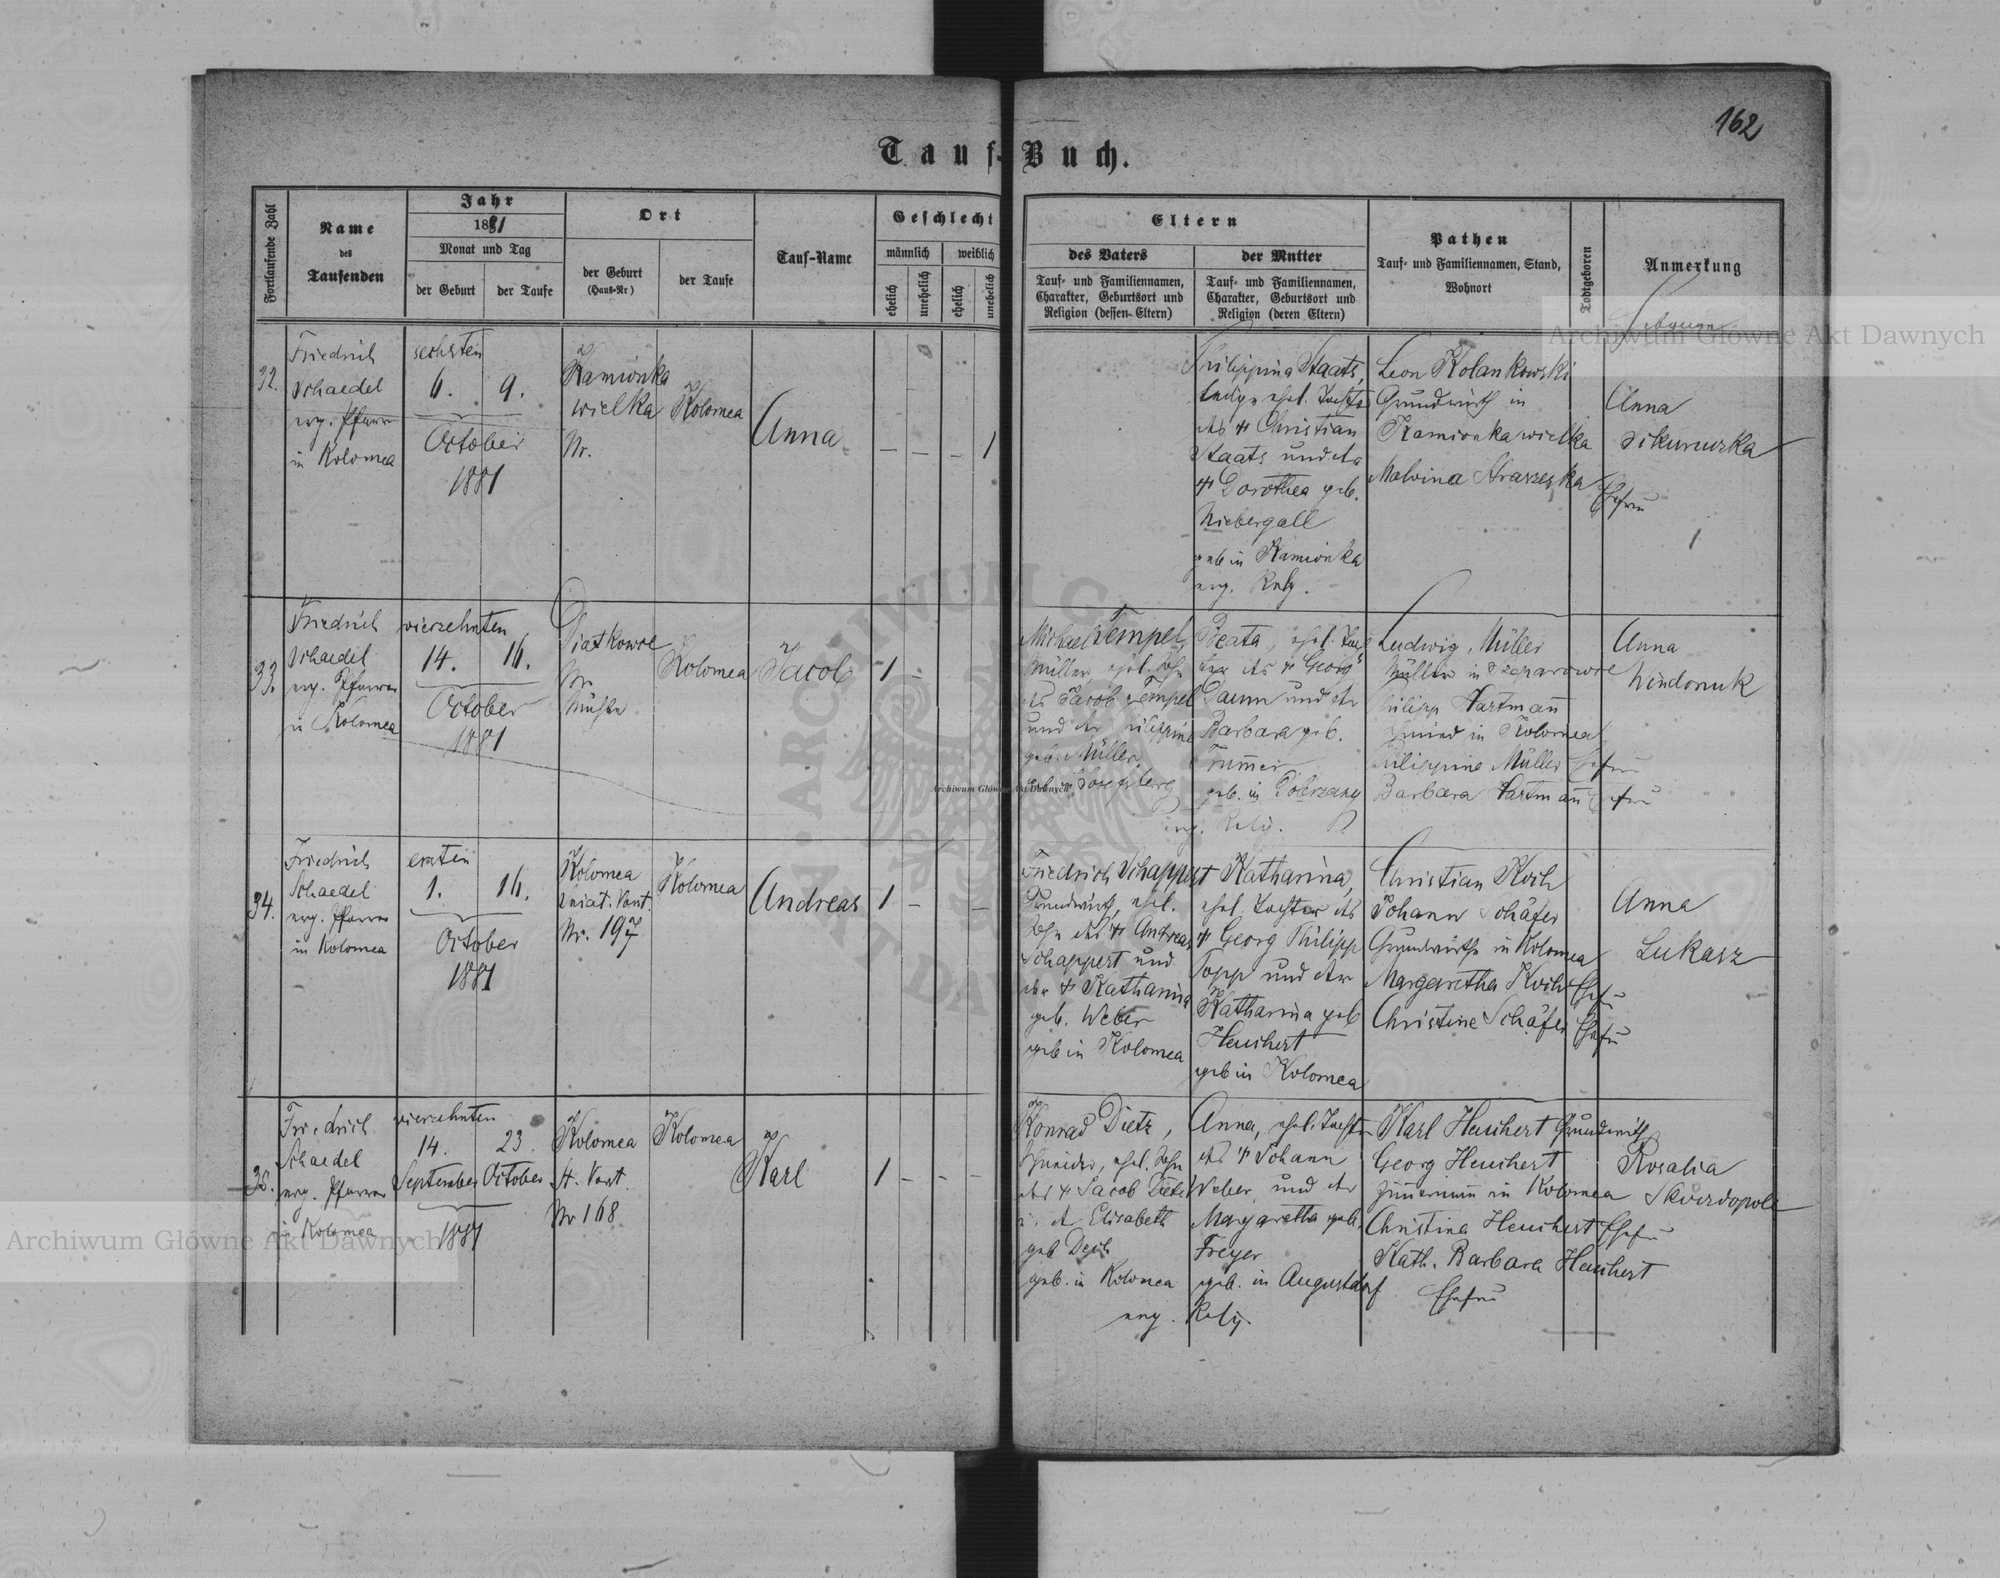 162
Tauf-Buch.
Fortlaufende Zahl
Name
des
Taufenden
Jahr
1881
Monat und Tag
der Geburt
der Taufe
Ort
der Geburt
(Haus-Nr)
der Taufe
Tauf-Name
Geschlecht
männlich
weiblich
ehelich
unehelich
ehelich
unehelich
Eltern
des Vaters
Tauf- und Familiennamen,
Charakter, Geburtsort und
Religion (dessen Eltern)
der Mutter
Tauf- und Familiennamen,
Charakter, Geburtsort und
Religion (deren Eltern)
Pathen
Tauf- und Familiennamen, Stand,
Wohnort
Todtgeboren
Anmerkung
32.
Friedrich
Schaedel
evg. Pfarrer
in Kolomea
sechsten
6.
9.
October
1881
Kamionka
wielka
Nr.
Kolomea
Anna
— — — 1
Filippina Staats,
ledig, ehel. Tochter
des † Christian
Staats und der
† Dorothea geb.
Niebergall
geb in Kamionka
evg. Relg.
Leon Kolankowski
Grundwirth in
Kamionka wielka
Malvina
Hebamme
Anna
33.
Friedrich
Schaedel
evg. Pfarrer
in Kolomea
vierzehnten
14.
16.
October
1881
Diatkowce
Nr.
Mühle
Kolomea
Jacob
1 —
Michael Tempel,
Müller, ehel. Sohn
des Jacob Tempel
und der Filippine
geb. Müller
geb in Josefsberg
Beata, ehel. Toch
ter des † Georg
Daum und der
Barbara geb.
Trummer
geb. in Dobrzany
evg. Relig.
Ludwig Müller
Müller in Szeparowce
Filipp Hartmañ
Schmied in Kolomea
Filippine Müller Ehefrau
Barbara Hartmañ Ehefrau
Anna
34.
Friedrich
Schaedel
evg. Pfarrer
in Kolomea
ersten
1.
16.
October
1881
Kolomea
Sniat. Vorst.
Nr. 197
Kolomea
Andreas
1 — —
Friedrich Schappert
Grundwirth, ehel.
Sohn des † Andreas
Schappert und
der † Katharina
geb. Weber
geb in Kolomea
Katharina,
ehel. Tochter des
† Georg Philipp
Topp und der
Katharina geb
Heuchert
geb in Kolomea
Christian Koch
Johann Schäfer
Grundwirthe in Kolomea
Margaretha Koch Ehefr
Christine Schäfer Ehefr
Anna
Lukasz
35.
Friedrich
Schaedel
evg. Pfarrer
in Kolomea
vierzehnten
14.
23
September October
1881
Kolomea
St. Vorst.
Nr 168
Kolomea
Karl
1 — — —
Konrad Dietz,
Schneider, ehel. Sohn
des † Jacob Dietz
u. d. Elisabeth
geb
geb. in Kolomea
Anna, ehel. Tochter
des † Johann
Weber, und der
Margaretha geb.
Freyer
geb. in Augustdorf
evg. Relig.
Karl Heuchert Grundwirth
Georg Heuchert
Zimmermann in Kolomea
Christina Heuchert Ehefr
Kath. Barbara Heuchert
Ehefrau
Rosalia
Archiwum Główne Akt Dawnych
Archiwum Główne Akt Dawnych
Archiwum Główne Akt Dawnych